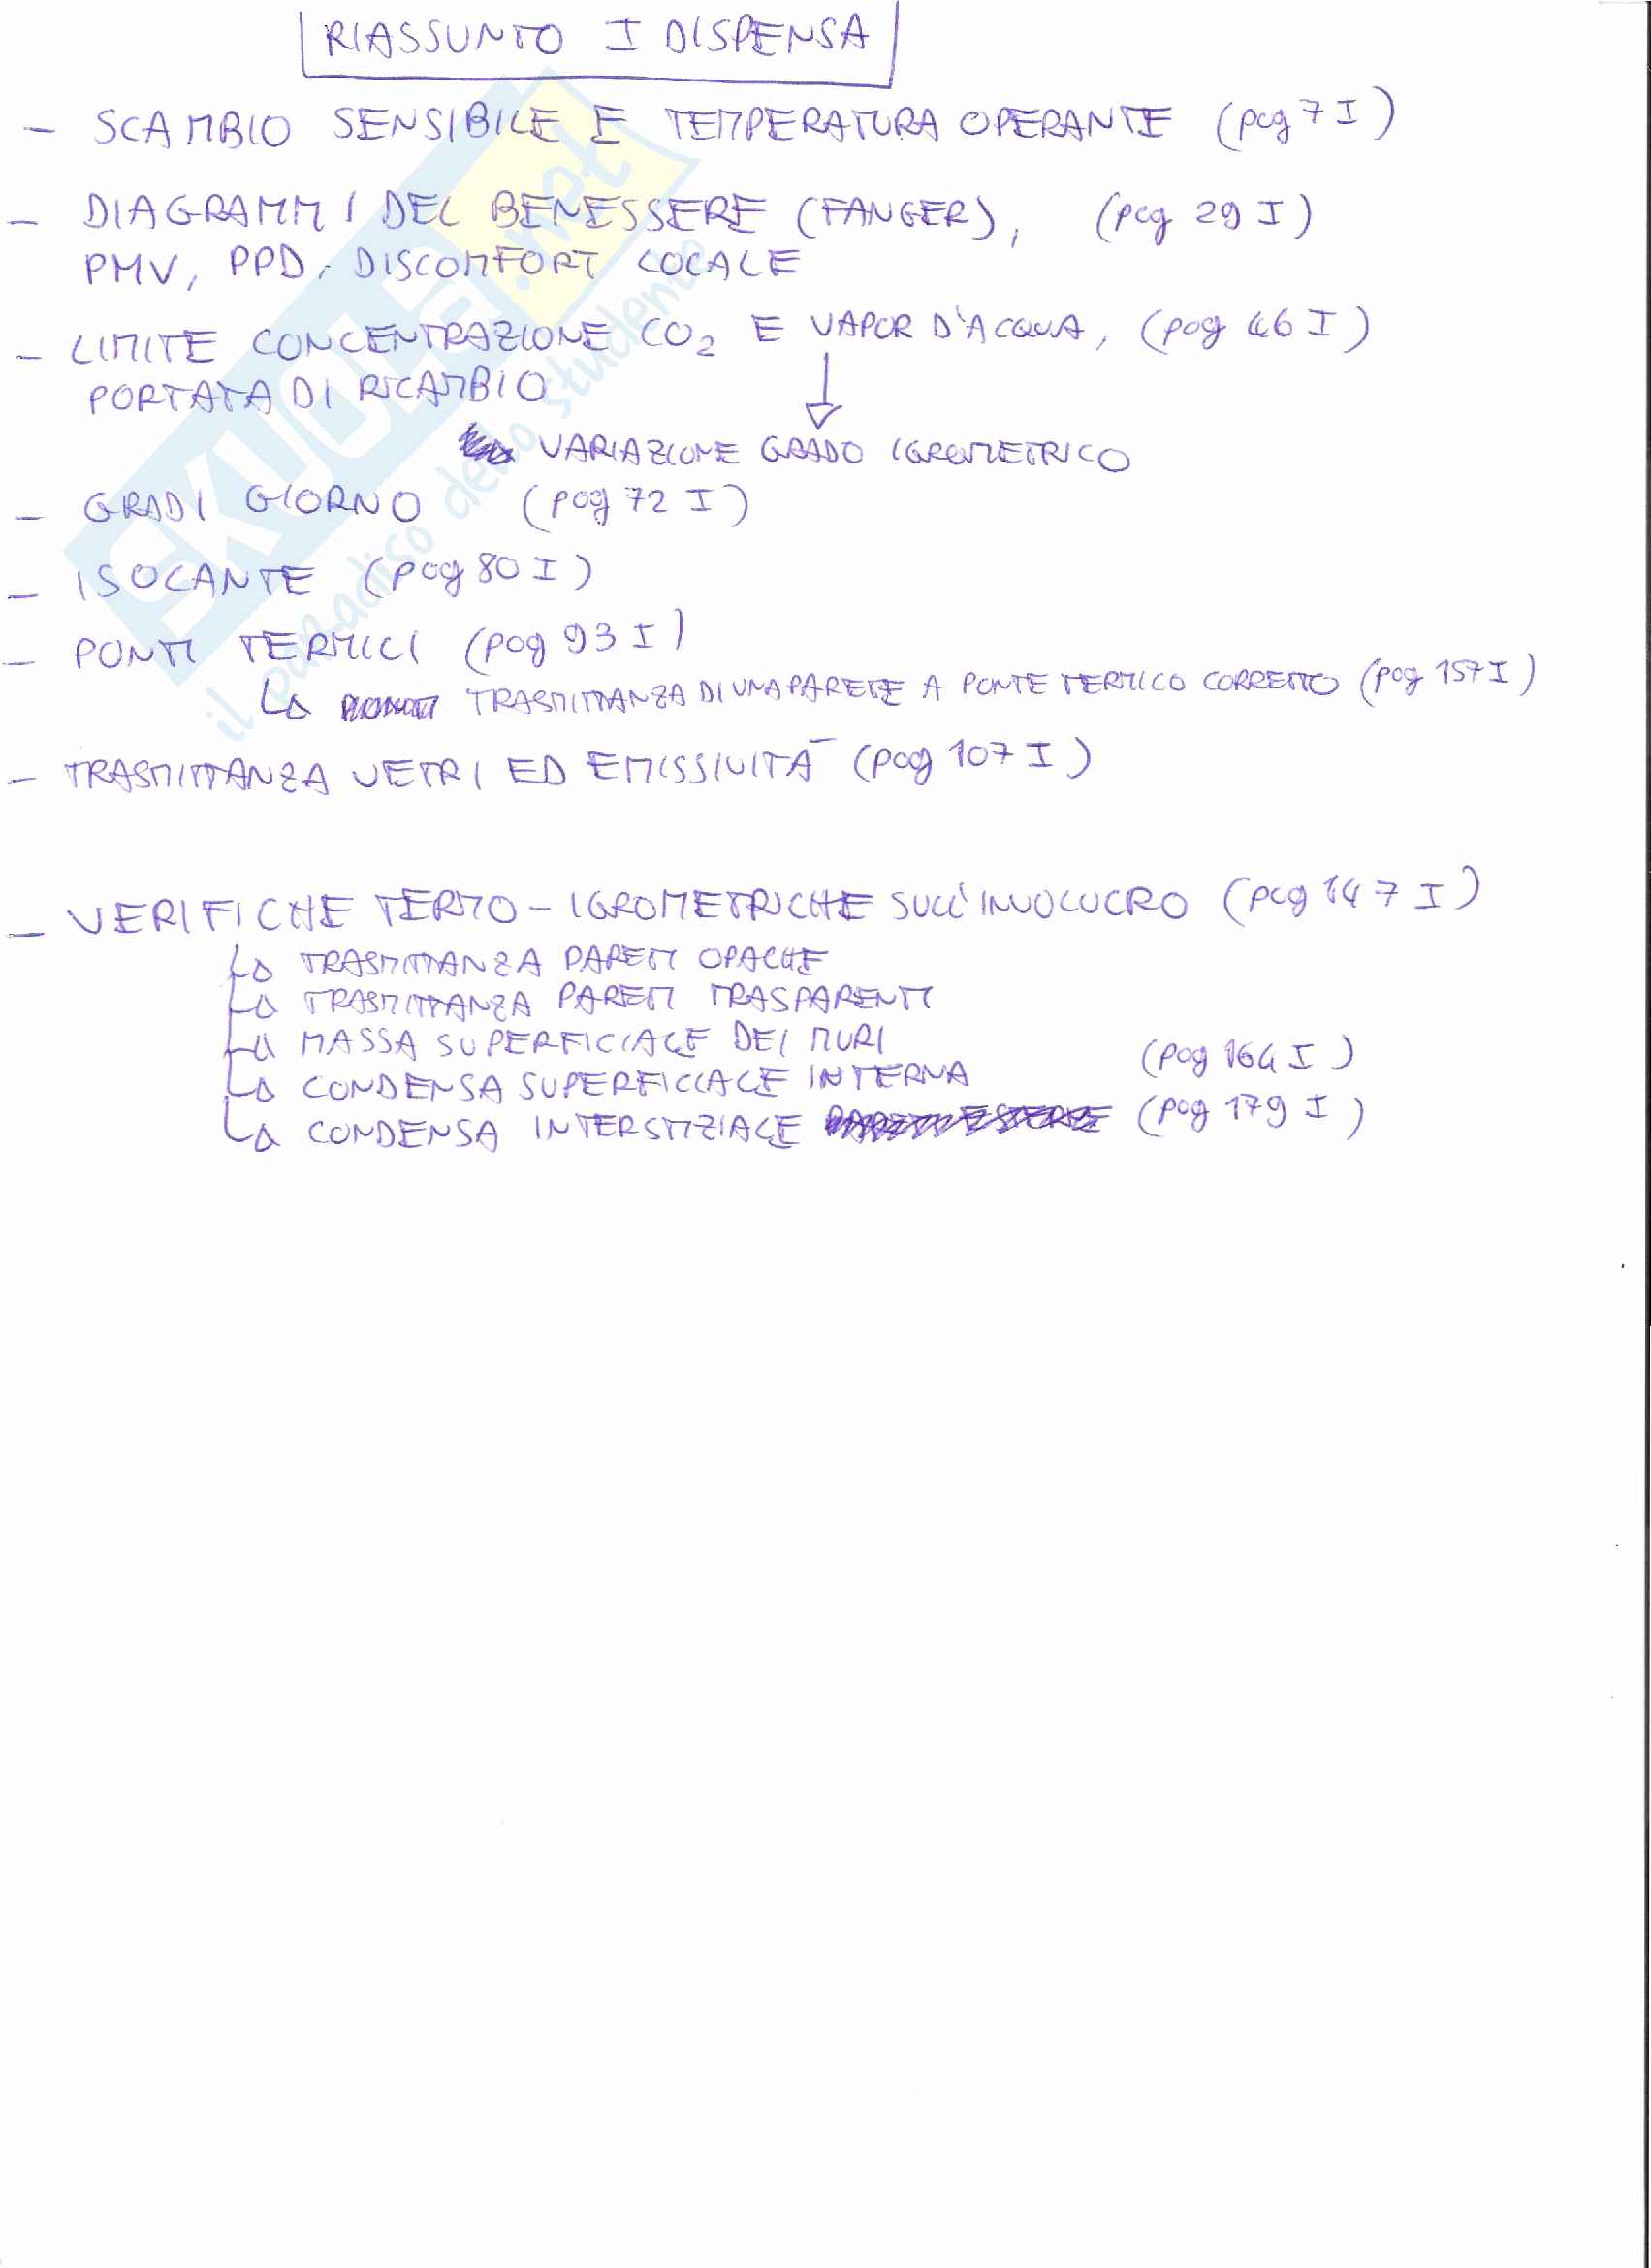 RIASSUNTO I DISPENSA
- SCAMBIO SENSIBILE E TEMPERATURA OPERANTE (pag 7 I)
- DIAGRAMMI DEL BENESSERE (FANGER), (pag 29 I)
PMV, PPD, DISCOMFORT LOCALE
- LIMITE CONCENTRAZIONE CO2 E VAPOR D'ACQUA, (pag 46 I)
PORTATA DI RICAMBIO
VARIAZIONE GRADO IGROMETRICO
- GRADI GIORNO (pag 72 I)
- ISOLANTE (pag 80 I)
- PONTI TERMICI (pag 93 I)
TRASMITTANZA DI UNA PARETE A PONTE TERMICO CORRETTO (pag 157 I)
- TRASMITTANZA VETRI ED EMISSIVITÀ (pag 107 I)
- VERIFICHE TERMO-IGROMETRICHE SULL'INVOLUCRO (pag 147 I)
TRASMITTANZA PARETI OPACHE
TRASMITTANZA PARETI TRASPARENTI
MASSA SUPERFICIALE DEI MURI
CONDENSA SUPERFICIALE INTERNA (pag 164 I)
CONDENSA INTERSTIZIALE (pag 179 I)
SKUOLA.net
il paradiso dello studente